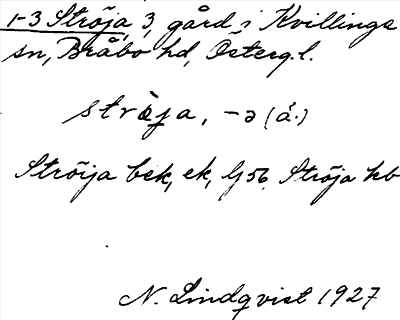 1-3 Ströja, 3, gård i Kvillinge
sn, Bråbo hd, Östergl.
ströja, -ə (á.)
Ströija bek, ek, Lj 56. Ströja kb
N. Lindqvist 1927